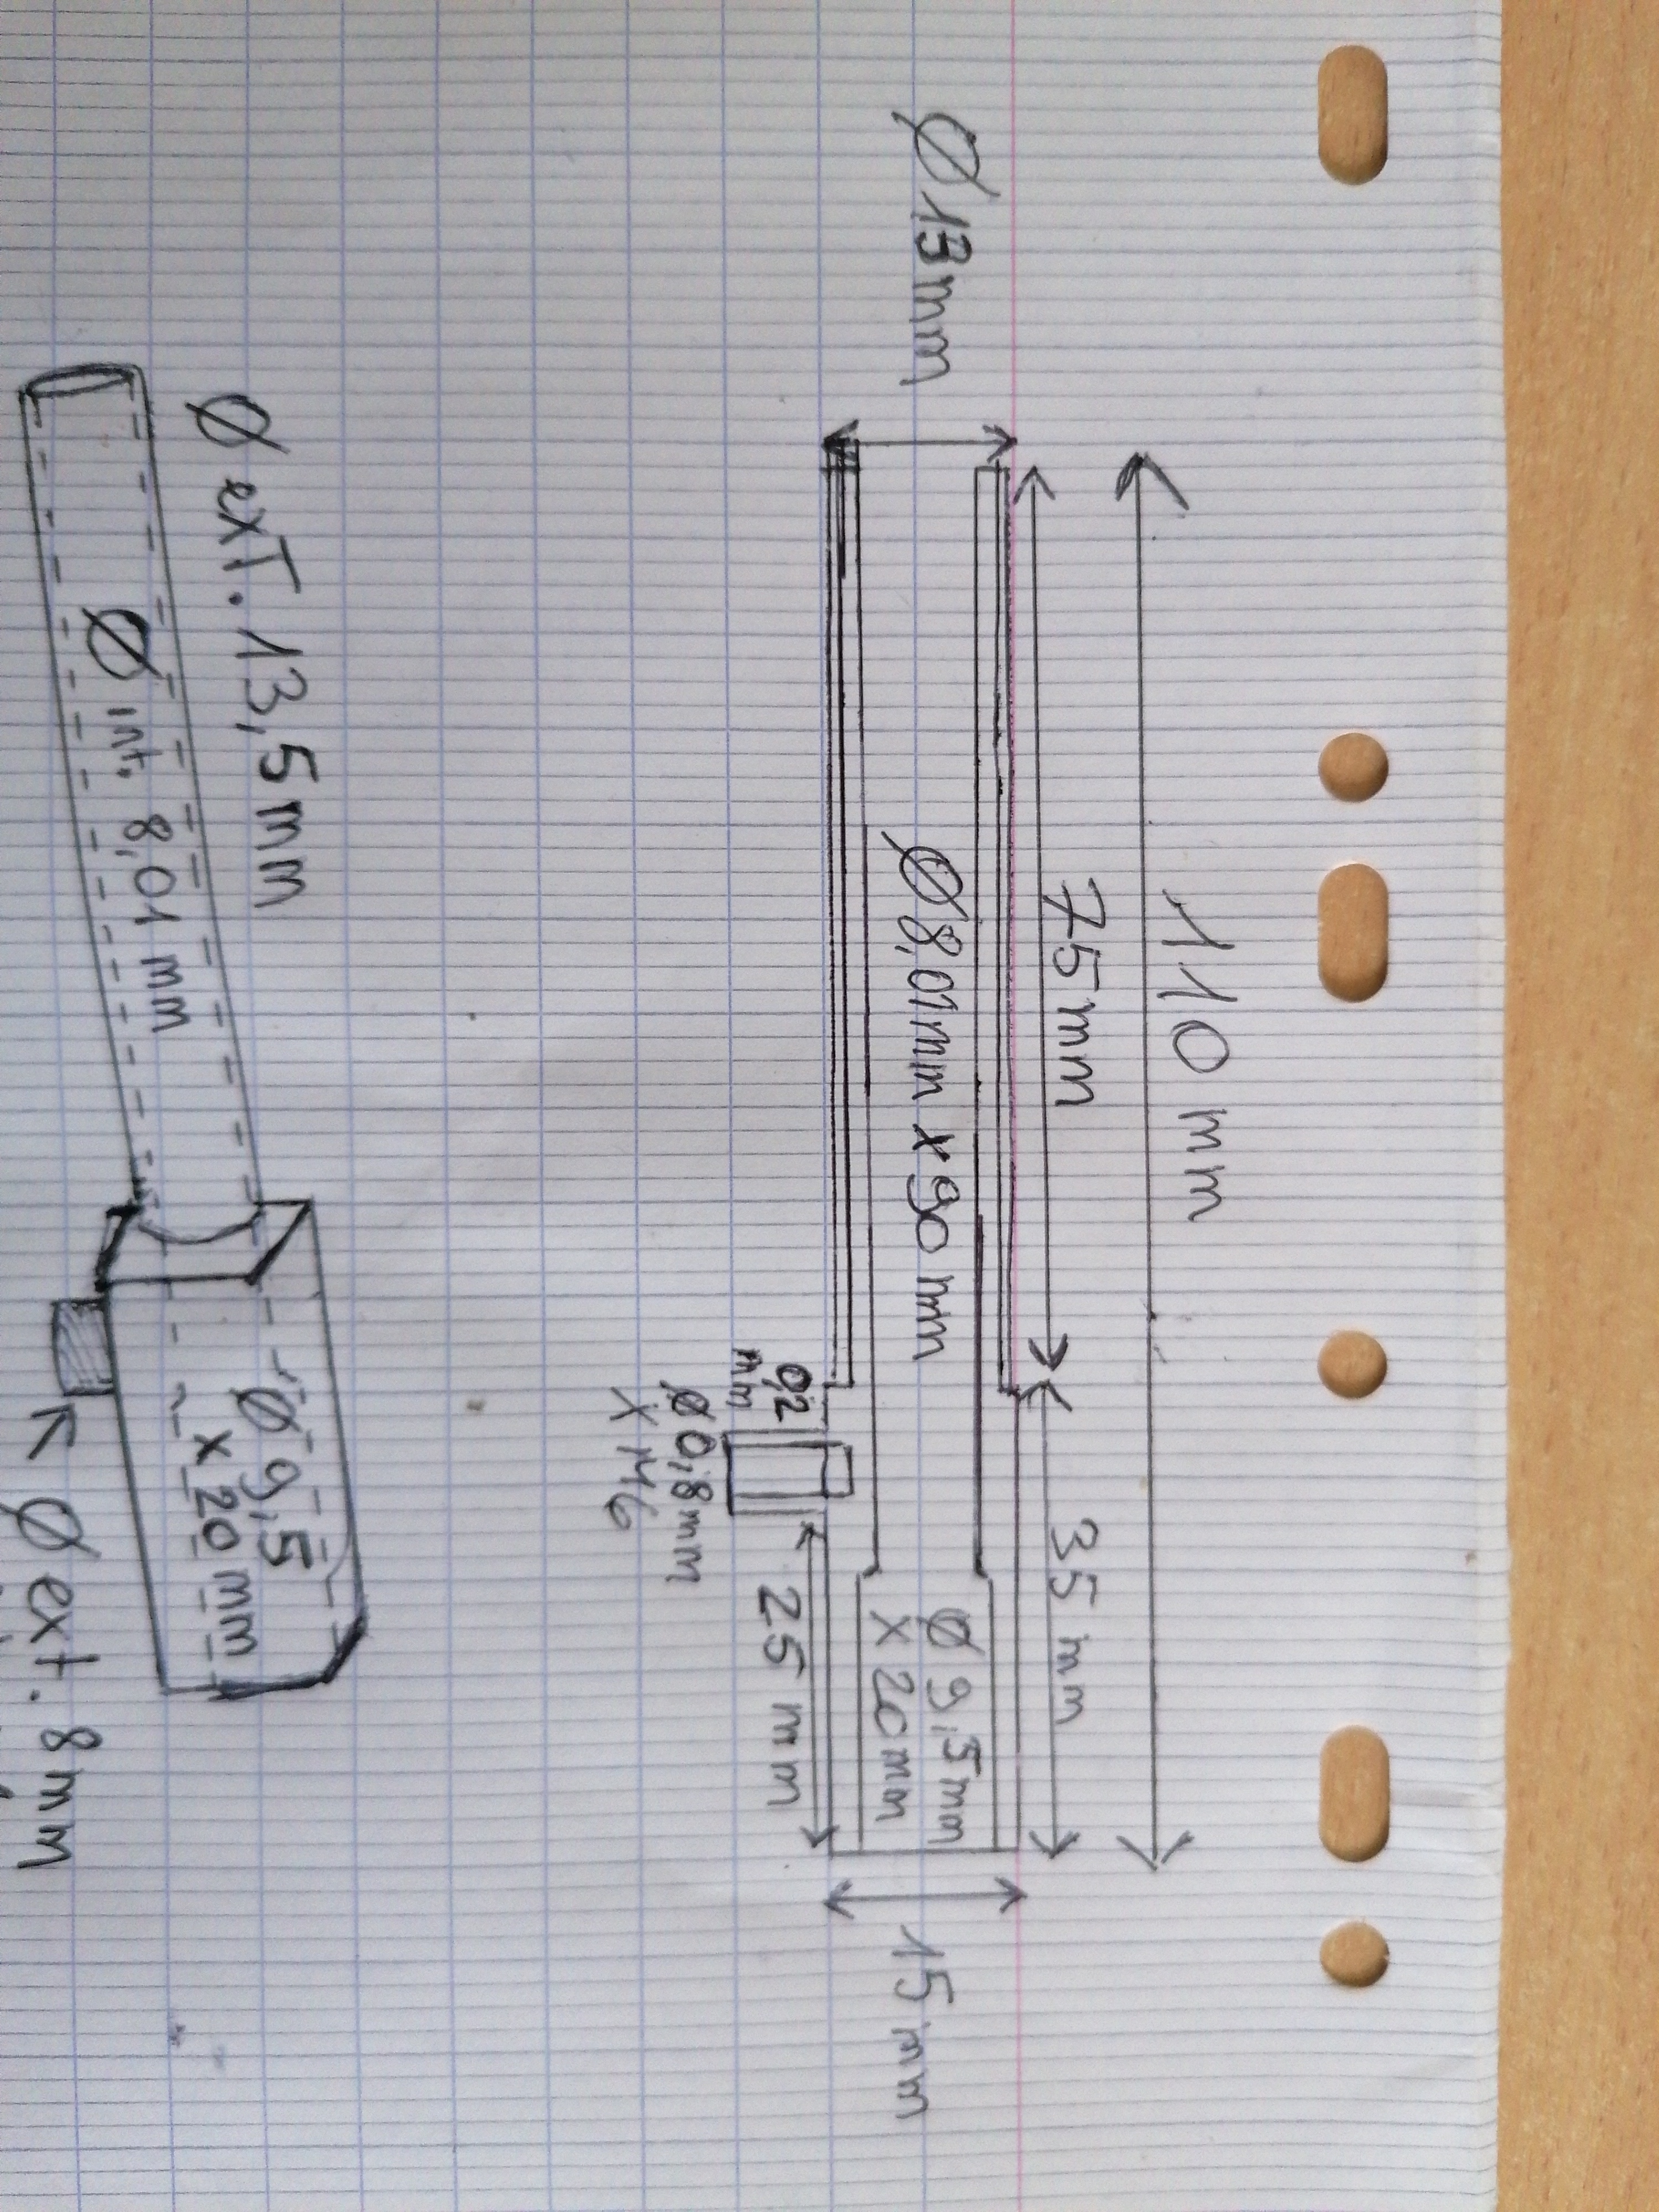 110 mm
75 mm
35 mm
Ø 13 mm
Ø 8,01 mm x 90 mm
Ø 9,5 mm
x 20 mm
15 mm
0,2
mm
Ø 0,8 mm
x M6
25 mm
Ø exT. 13,5 mm
Ø int. 8,01 mm
Ø 9,5
x 20 mm
Ø ext. 8 mm